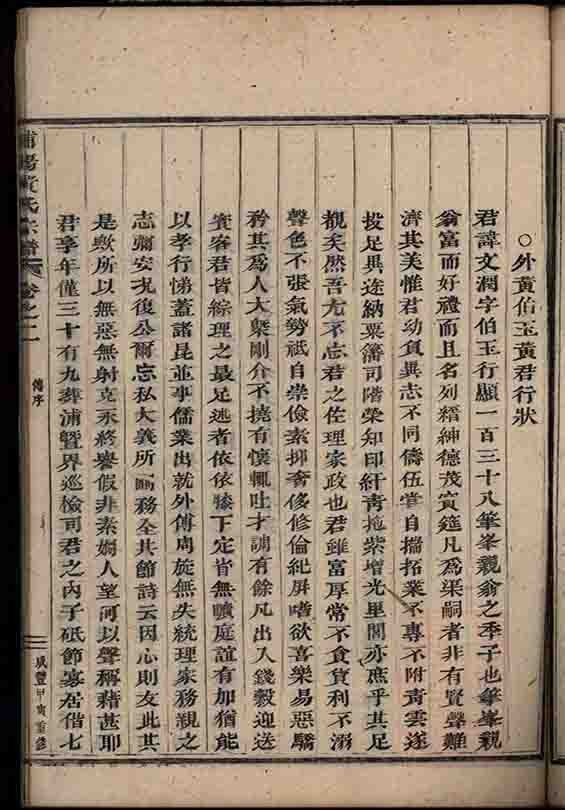 ○外黃伯玉黃君行狀
君諱文潤字伯玉行顯一百三十八筆峯親翁之季子也筆峯親
翁富而好禮而且名列縉紳德茂賓筵凡為渠嗣者非有賢聲難
濟其美惟君幼負異志不同儔伍嘗自揣拓業不專不附青雲遂
投足異途納粟籓司階榮知印紆青拖紫增光里閭亦庶乎其足
觀矣然吾尤不忘君之佐理家政也君雖富厚常不食貨利不溺
聲色不張氣勢祇自崇儉素抑奢侈修倫紀屏嗜欲喜樂易惡驕
矜其為人大槩剛介不撓有懷輒吐才調有餘凡出入錢穀迎送
賓客君皆綜理之最足述者依依膝下定省無曠庭誼有加猶能
以孝行悌蓋諸昆並事儒業出就外傅周旋無失統理家務親之
志彌安况復公爾忘私大義所關務全其節詩云因心則友此其
是歟所以無惡無射克永終譽假非素嫺人望河以聲稱藉甚耶
君享年僅三十有九葬浦暨界巡檢司君之內子砥節寡居偕七
浦陽黃氏宗譜
卷之二
傳序
咸豐甲寅重修